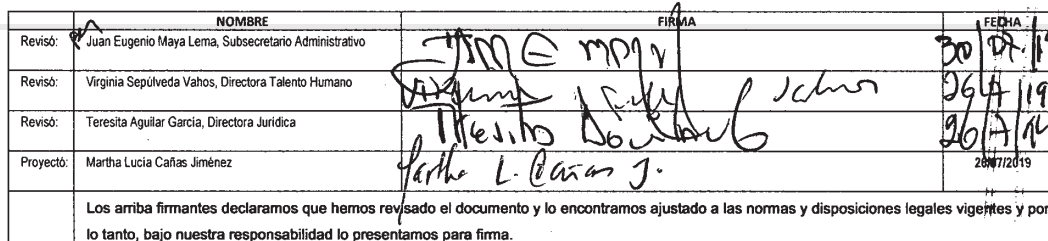 NOMBRE FIRMA FECHA
Revisó: Juan Eugenio Maya Lema, Subsecretario Administrativo 30/07/1
Revisó: Virginia Sepúlveda Vahos, Directora Talento Humano 26/7/19
Revisó: Teresita Aguilar García, Directora Jurídica 26/7/19
Proyectó: Martha Lucía Cañas Jiménez Martha L. Cañas J. 26/07/2019
Los arriba firmantes declaramos que hemos revisado el documento y lo encontramos ajustado a las normas y disposiciones legales vigentes y por
lo tanto, bajo nuestra responsabilidad lo presentamos para firma.